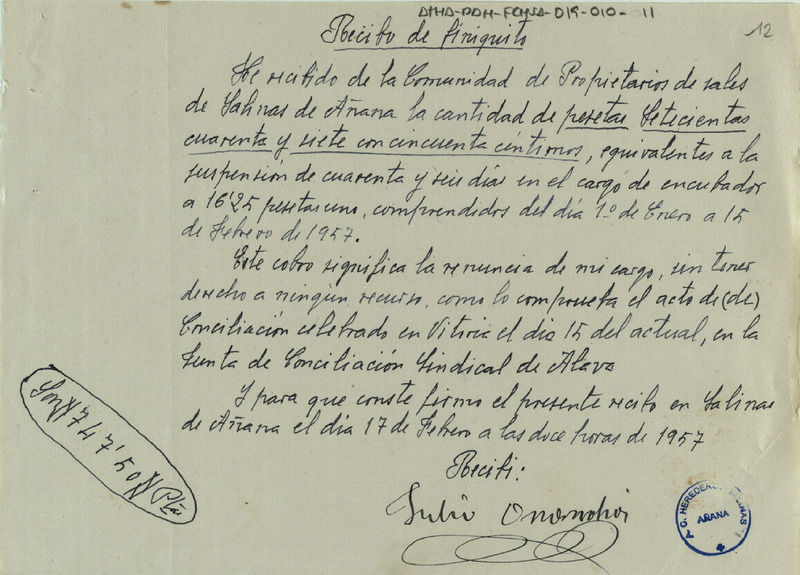 ATHA-DDH-FCHSA-019-010-11
12
Recibo de finiquito
He recibido de la Comunidad de Propietarios de sales
de Salinas de Añana la cantidad de pesetas Setecientas
cuarenta y siete con cincuenta céntimos, equivalentes a la
suspensión de cuarenta y seis días en el cargo de encubador
a 16'25 pesetas uno, comprendidos del día 1º de Enero a 15
de Febrero de 1957.
Este cobro significa la renuncia de mi cargo, sin tener
derecho a ningún recurso, como lo comprueba el acto de (de)
Conciliación celebrado en Vitoria el dia 15 del actual, en la
Junta de Conciliación Sindical de Alava
Y para que conste firmo el presente recibo en Salinas
de Añana el día 17 de Febrero a las doce horas de 1957
Recibi:
Julio
Son 747,50 Pta
AÑANA